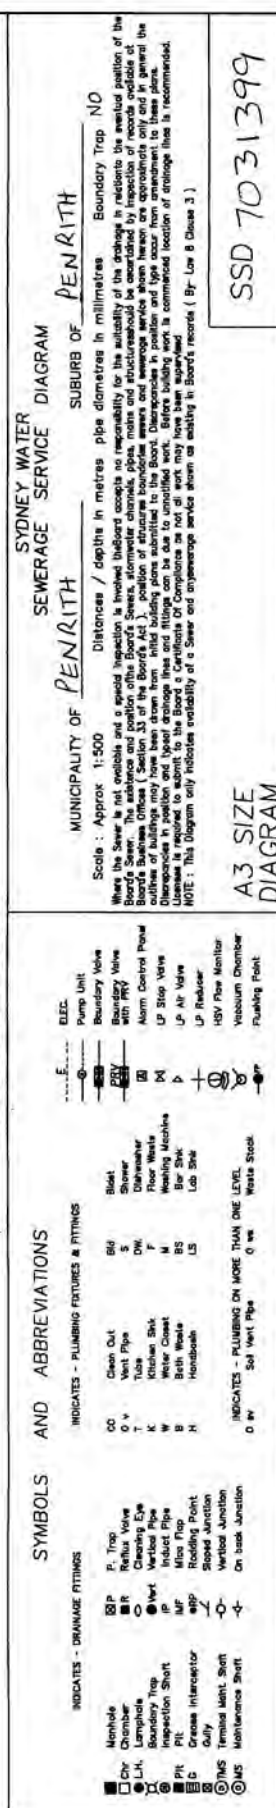 SYDNEY WATER
SEWERAGE SERVICE DIAGRAM
MUNICIPALITY OF PENRITH SUBURB OF PENRITH
Scale : Approx 1:500 Distances / depths in metres pipe diametres in millimetres Boundary Trap NO
Where the Sewer is not available and a special inspection is involved theBoard accepts no responsibility for the suitability of the drainage in relationto the eventual position of the
Board's Sewer. The existence and position ofthe Board's Sewers, stormwater channels, pipes, mains and structuresshould be ascertained by inspection of records available at
Board's Business Offices. ( Section 33 of the Board's Act ). position of structures boundaries sewers and sewerage service shown hereon are approximate only and in general the
outlines of buildings may have been drawn from initial building plans submitted to the Board. Discrepancies in position and type occur from amendment to these plans.
Discrepancies in position and typeof drainage lines and fittings can be due to unnotified work. Before building work is commenced location of drainage lines is recommended.
Licensee is required to submit to the Board a Certificate Of Compliance as not all work may have been supervised
NOTE : This Diagram only indicates availability of a Sewer and anysewerage service shown as existing in Board's records ( By- Law 8 Clause 3 )
A3 SIZE
DIAGRAM
SSD 7031399
SYMBOLS AND ABBREVIATIONS
INDICATES - DRAINAGE FITTINGS
Manhole
Chr Chamber
L.H. Lamphole
Boundary Trap
Inspection Shaft
Pit Pit
G Grease Interceptor
Gully
TMS Terminal Maint. Shaft
MS Maintenance Shaft
P P. Trap
R Reflux Valve
Cleaning Eye
Vert Vertical Pipe
IP Induct Pipe
MF Mica Flap
RP Rodding Point
Sloped Junction
Vertical Junction
On back Junction
INDICATES - PLUMBING FIXTURES & FITTINGS
CO Clean Out
O v Vent Pipe
T Tubs
K Kitchen Sink
W Water Closet
B Bath Waste
H Handbasin
Bid Bidet
S Shower
DW. Dishwasher
F Floor Waste
M Washing Machine
BS Bar Sink
LS Lab Sink
INDICATES - PLUMBING ON MORE THAN ONE LEVEL
O sv Soil Vent Pipe O ws Waste Stack
E ELEC.
Pump Unit
Boundary Valve
PRV Boundary Valve
with PRV
Alarm Control Panel
LP Stop Valve
LP Air Valve
LP Reducer
HSV Flow Monitor
Vacouum Chamber
FP Flushing Point